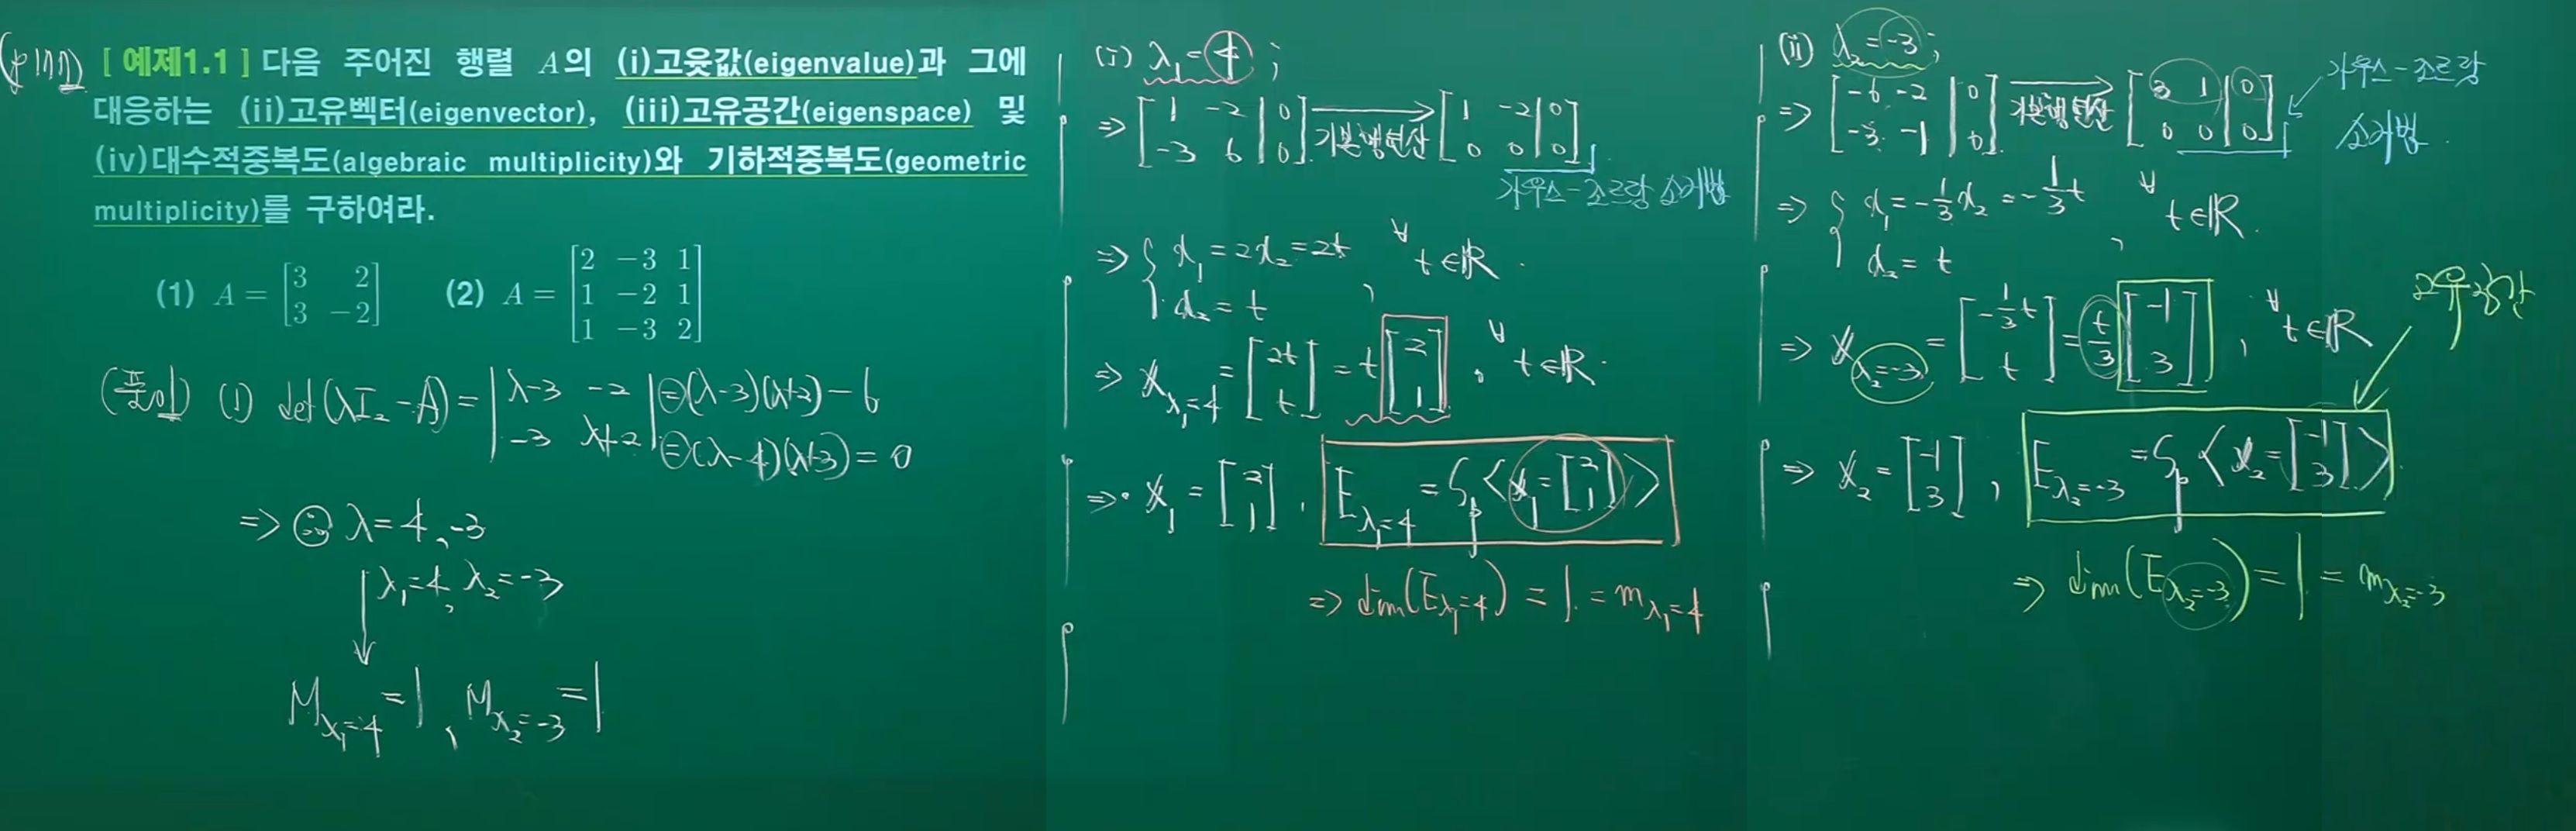 (보기 1.1)
[ 예제1.1 ] 다음 주어진 행렬 A의 (i)고윳값(eigenvalue)과 그에
대응하는 (ii)고유벡터(eigenvector), (iii)고유공간(eigenspace) 및
(iv)대수적중복도(algebraic multiplicity)와 기하적중복도(geometric
multiplicity)를 구하여라.
(1) A = [3 2; 3 −2] (2) A = [2 −3 1; 1 −2 1; 1 −3 2]
(풀이) (1) det(λI₂ − A) = |λ−3 −2; −3 λ+2| = (λ−3)(λ+2) − 6
= (λ−4)(λ+3) = 0
⇒ ∴ λ = 4, −3
λ₁=4, λ₂=−3
M_{λ₁=4} = 1, M_{λ₂=−3} = 1
(i) λ₁ = 4 ;
⇒ [1 −2 | 0; −3 6 | 0] → 기본행연산 [1 −2 | 0; 0 0 | 0]
가우스-조르당 소거법
⇒ { x₁ = 2x₂ = 2t, x₂ = t , ∀t∈ℝ.
⇒ x_{λ₁=4} = [2t; t] = t [2; 1] , ∀t∈ℝ.
⇒ x₁ = [2; 1] , E_{λ₁=4} = Sp< x₁ = [2; 1] >
⇒ dim(E_{λ₁=4}) = 1 = m_{λ₁=4}
(ii) λ₂ = −3 ;
⇒ [−6 −2 | 0; −3 −1 | 0] → 기본행연산 [3 1 | 0; 0 0 | 0]
가우스-조르당
소거법
⇒ { x₁ = −1/3 x₂ = −1/3 t, x₂ = t , ∀t∈ℝ.
⇒ x_{λ₂=−3} = [−1/3 t; t] = t/3 [−1; 3] , ∀t∈ℝ
고유공간
⇒ x₂ = [−1; 3] , E_{λ₂=−3} = Sp< x₂ = [−1; 3] >
⇒ dim(E_{λ₂=−3}) = 1 = m_{λ₂=−3}